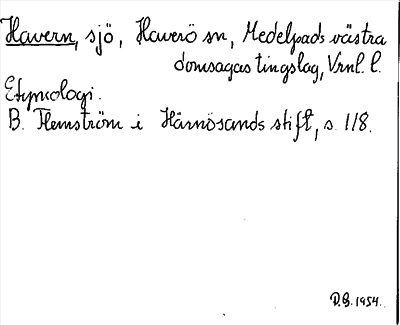 Havern, sjö, Haverö sn, Medelpads västra
domsagas tingslag, Vrnl. l.
Etymologi.
B. Flemström i Härnösands stift, s. 118.
D.G. 1954.